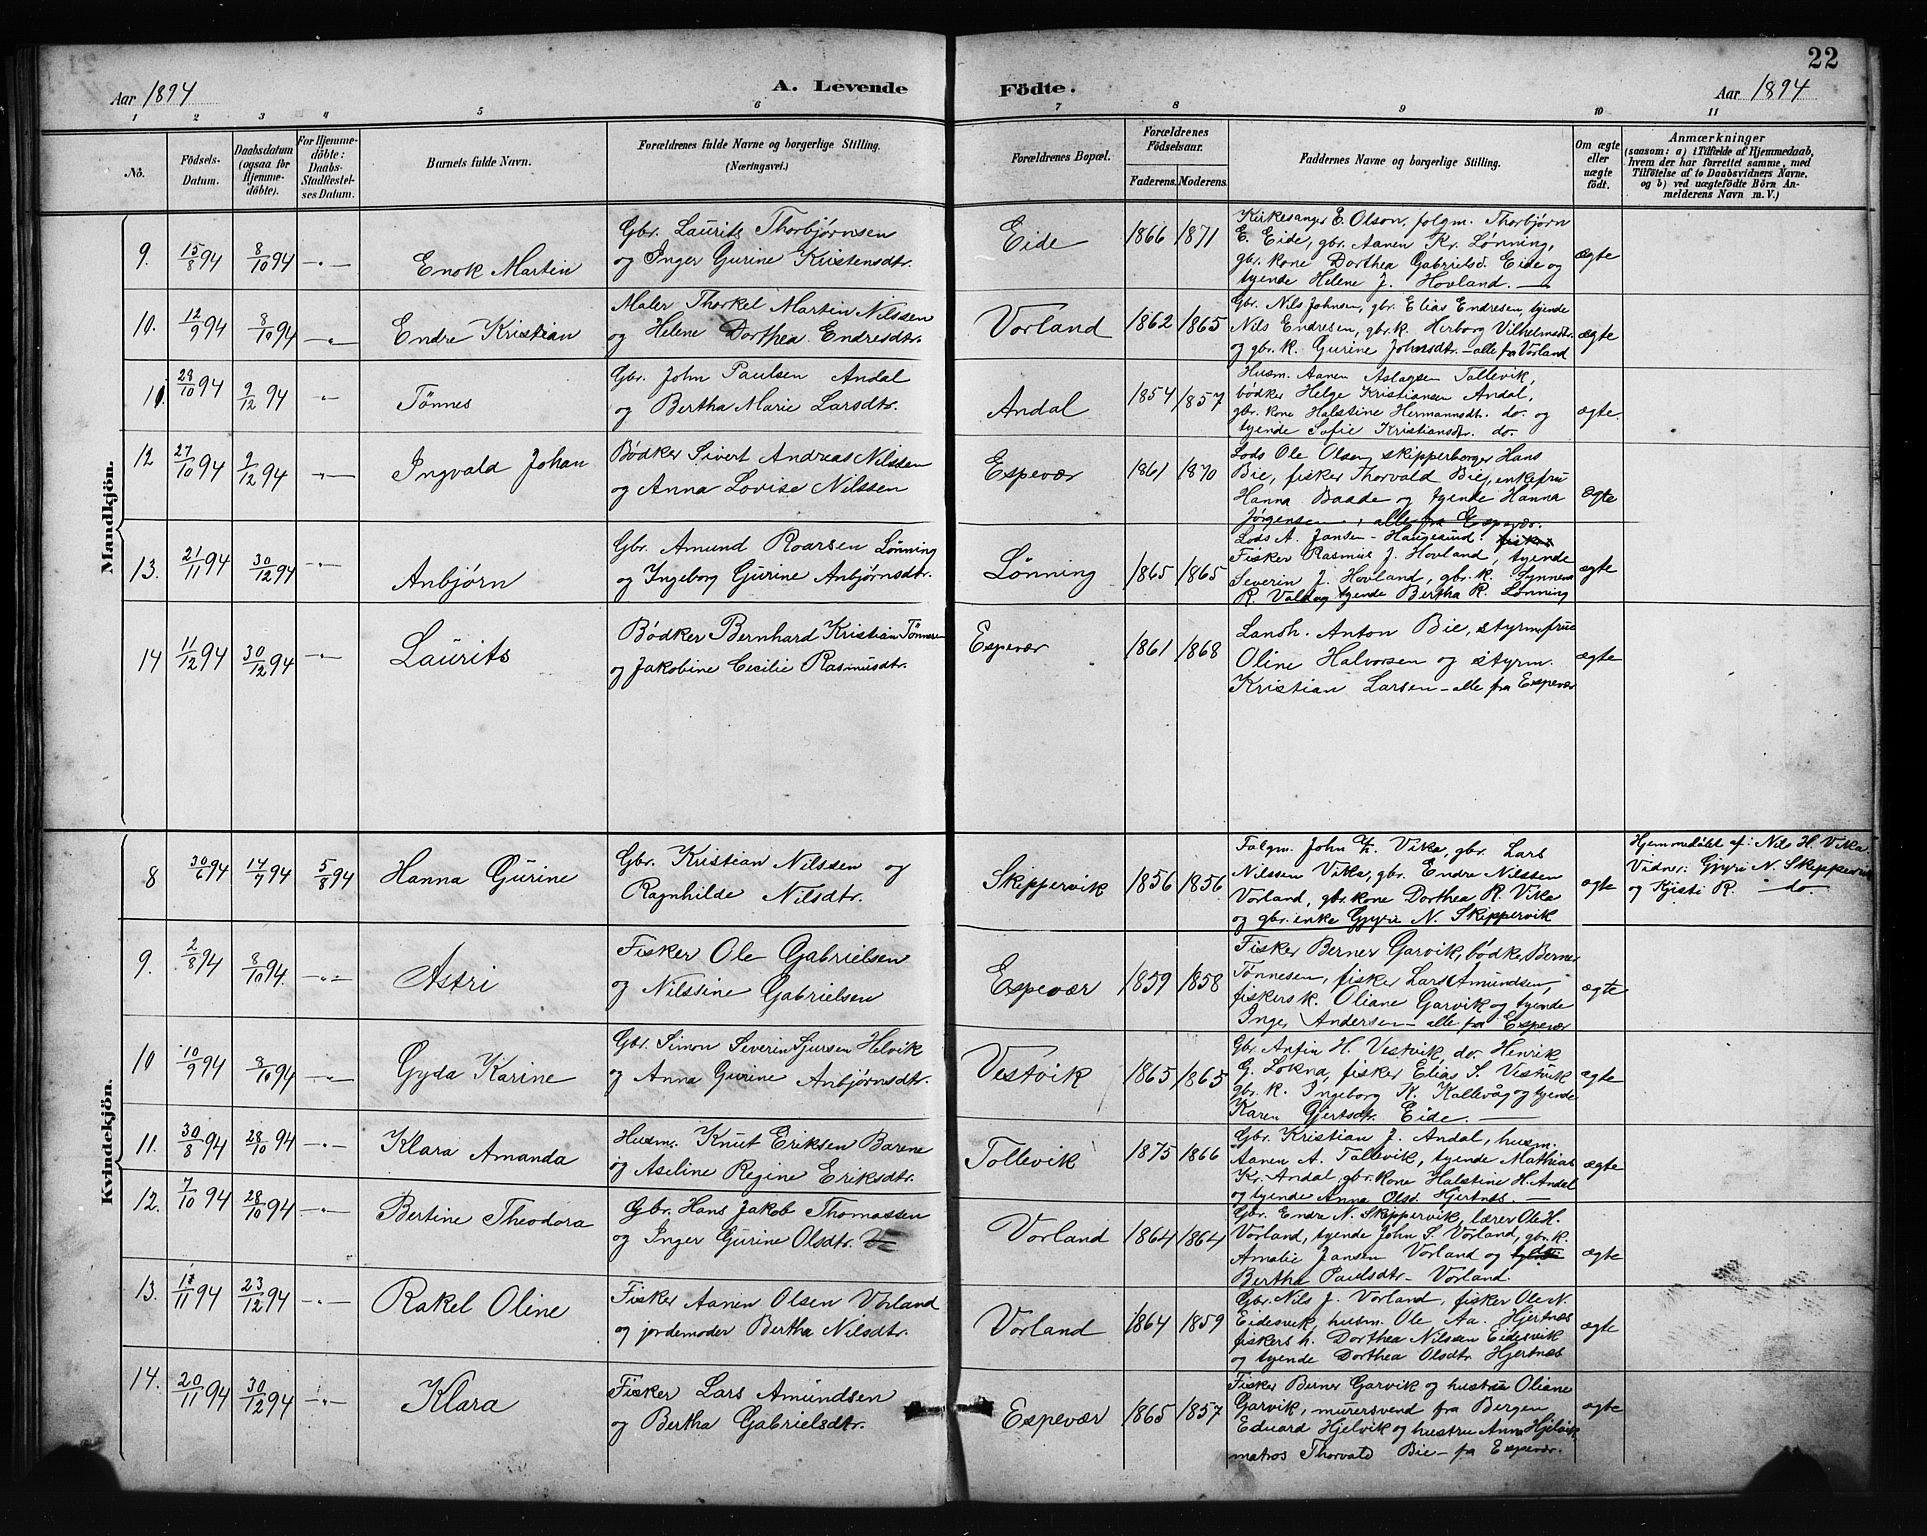 22
Aar 1894
A. Levende Födte.
Aar 1894
1 2 3 4 5 6 7 8 9 10 11
No.
Födsels-Datum.
Daabsdatum (ogsaa for Hjemme-döbte).
For Hjemme-döbte: Daabs-Stadfæstel-ses Datum.
Barnets fulde Navn.
Forældrenes fulde Navne og borgerlige Stilling. (Næringsvei.)
Forældrenes Bopæl.
Forældrenes Födselsaar.
Faderens. Moderens.
Faddernes Navne og borgerlige Stilling.
Om ægte eller uægte födt.
Anmærkninger
(saasom: a) i Tilfælde af Hjemmedaab, hvem der har forrettet samme, med Tilföielse af to Daabsvidners Navne, og b) ved uægtefödte Börn An-melderens Navn m. V.)
Mandkjön.
9. 15/8 94 8/10 94 -"- Enok Martin
Gbr. Laurits Thorbjørnsen
og Inger Gurine Kristensdtr.
Eide 1866 1871
Kirkesanger E. Olson, folgm. Thorbjørn
E. Eide, gbr. Aanen Kr. Lønning,
gbr. kone Dorthea Gabrielsd. Eide og
tyende Helene J. Hovland. —
ægte
10. 12/9 94 8/10 94 -"- Endre Kristian
Maler Thorkel Martin Nilssen
og Helene Dorthea Endresdtr.
Vorland 1862 1865
Gbr. Nils Johnsen, gbr. Elias Endresen, tyende
Nils Endresen, gbr. k. Herborg Vilhelmsdtr.
og gbr. k. Gurine Johnsdtr. — alle fra Vorland
ægte
11. 28/10 94 9/12 94 -"- Tönnes
Gbr. John Paulsen Andal
og Bertha Marie Larsdtr.
Andal 1854 1857
Husm. Aanen Aslagsen Tollevik,
bødker Helge Kristiansen Andal,
gbr. kone Halstine Hermannsdt. do. og
tyende Sofie Kristiansdtr. do.
ægte.
12 27/10 94 9/12 94 -"- Ingvald Johan
Bödker Sivert Andreas Nilssen
og Anna Lovise Nilssen
Espevær 1861 1870
Lods Ole Olsen, skipperborger Hans
Bie, fisker Thorvald Bie, enkefru
Hanna Baade og tyende Hanna
Jørgensen, alle fra Espevær.
ægte
13. 21/11 94 30/12 94 -"- Anbjørn
Gbr. Amund Roarsen Lönning
og Ingeborg Gurine Anbjørnsdtr.
Lønning 1865 1865
Lods A. Jansen - Haugesund, fisker
Fisker Rasmus J. Hovland, tyende
Severin J. Hovland, gbr. k.
R. Vold og tyende Bertha R. Lønning
ægte
14 11/12 94 30/12 94 -"- Laurits
Bödker Bernhard Kristian Tönnesen
og Jakobine Cecilie Rasmusdtr.
Espevær 1861 1868
Landh. Anton Bie, styrm. frue
Oline Halvorsen og styrm.
Kristian Larsen - alle fra Espevær
ægte
Kvindekjön.
8 30/6 94 14/7 94 5/8 94 Hanna Gurine
Gbr. Kristian Nilssen og
Ragnhilde Nilsdtr.
Skippervik 1856 1856
Folgm. John Vika, gbr. Lars
Nilssen Vika, gbr. Endre Nilssen
Vorland, gbr. kone Dorthea R. Vika
og gbr. enke Gjyri N. Skippervik
ægte
Hjemmedøbt af: Nils H. Vika
Vidner: Gjyri N. Skippervik
og Kjisti R. —do—
9. 2/8 94 8/10 94. -"- Astri
Fisker Ole Gabrielsen
og Nilssine Gabrielsen
Espevær 1859 1858
Fisker Berner Garvik, bødker Berner
Tønnesen, fisker Lars Amundsen,
fiskers k. Oliane Garvik og tyende
Inger Andersen - alle fra Espevær
ægte
10 10/9 94 8/10 94 -"- Gyda Karine
Gbr. Simon Severin Sjursen Helvik
og Anna Gurine Anbjørnsdtr.
Vestvik 1865 1865
Gbr. Anfin H. Vestvik, do. Henrik
G. Lokna, fisker Elias S. Vestvik
gbr. k. Ingeborg K. Kallevåg og tyende
Karen Gjertsdtr. Eide. —
ægte
11. 30/8 94 28/10 94 -"- Klara Amanda
Husm. Knut Eriksen Barene
og Aseline Regine Eriksdtr.
Tollevik 1875 1866
Gbr. Kristian J. Andal, husm.
Aanen A. Tollevik, tyende Mathias
Kr. Andal, gbr. kone Halstine H. Andal
og tyende Anna Olsd. Hjertnes. —
ægte
12. 7/10 94 28/10 94 -"- Bertine Theodora
Gbr. Hans Jakob Thomassen
og Inger Gurine Olsdtr.
Vorland 1864 1864
Gbr. Endre N. Skippervik, lærer Ole H.
Vorland, tyende John S. Vorland, gbr. k.
Amalie Jansen Vorland og
Bertha Paulsdtr. Vorland.
ægte
13. 11/11 94 23/12 94 -"- Rakel Oline
Fisker Aanen Olsen Vorland
og jordemoder Bertha Nilsdtr.
Vorland 1864 1859
Gbr. Nils J. Vorland, fisker Ole N.
Eidesvik, husm. Ole Aa. Hjertnes
fiskers h. Dorthea Nilsen Eidesvik
og tyende Dorthea Olsdtr. Hjertnes
ægte
14. 20/11 94 30/12 94 -"- Klara
Fisker Lars Amundsen
og Bertha Gabrielsdtr.
Espevær 1865 1857
Fisker Berner Garvik og hustru Oliane
Garvik, murersvend fra Bergen
Eduard Hjelvik og hustru Anna Hjelvik,
matros Thorvald Bie - fra Espevær.
ægte